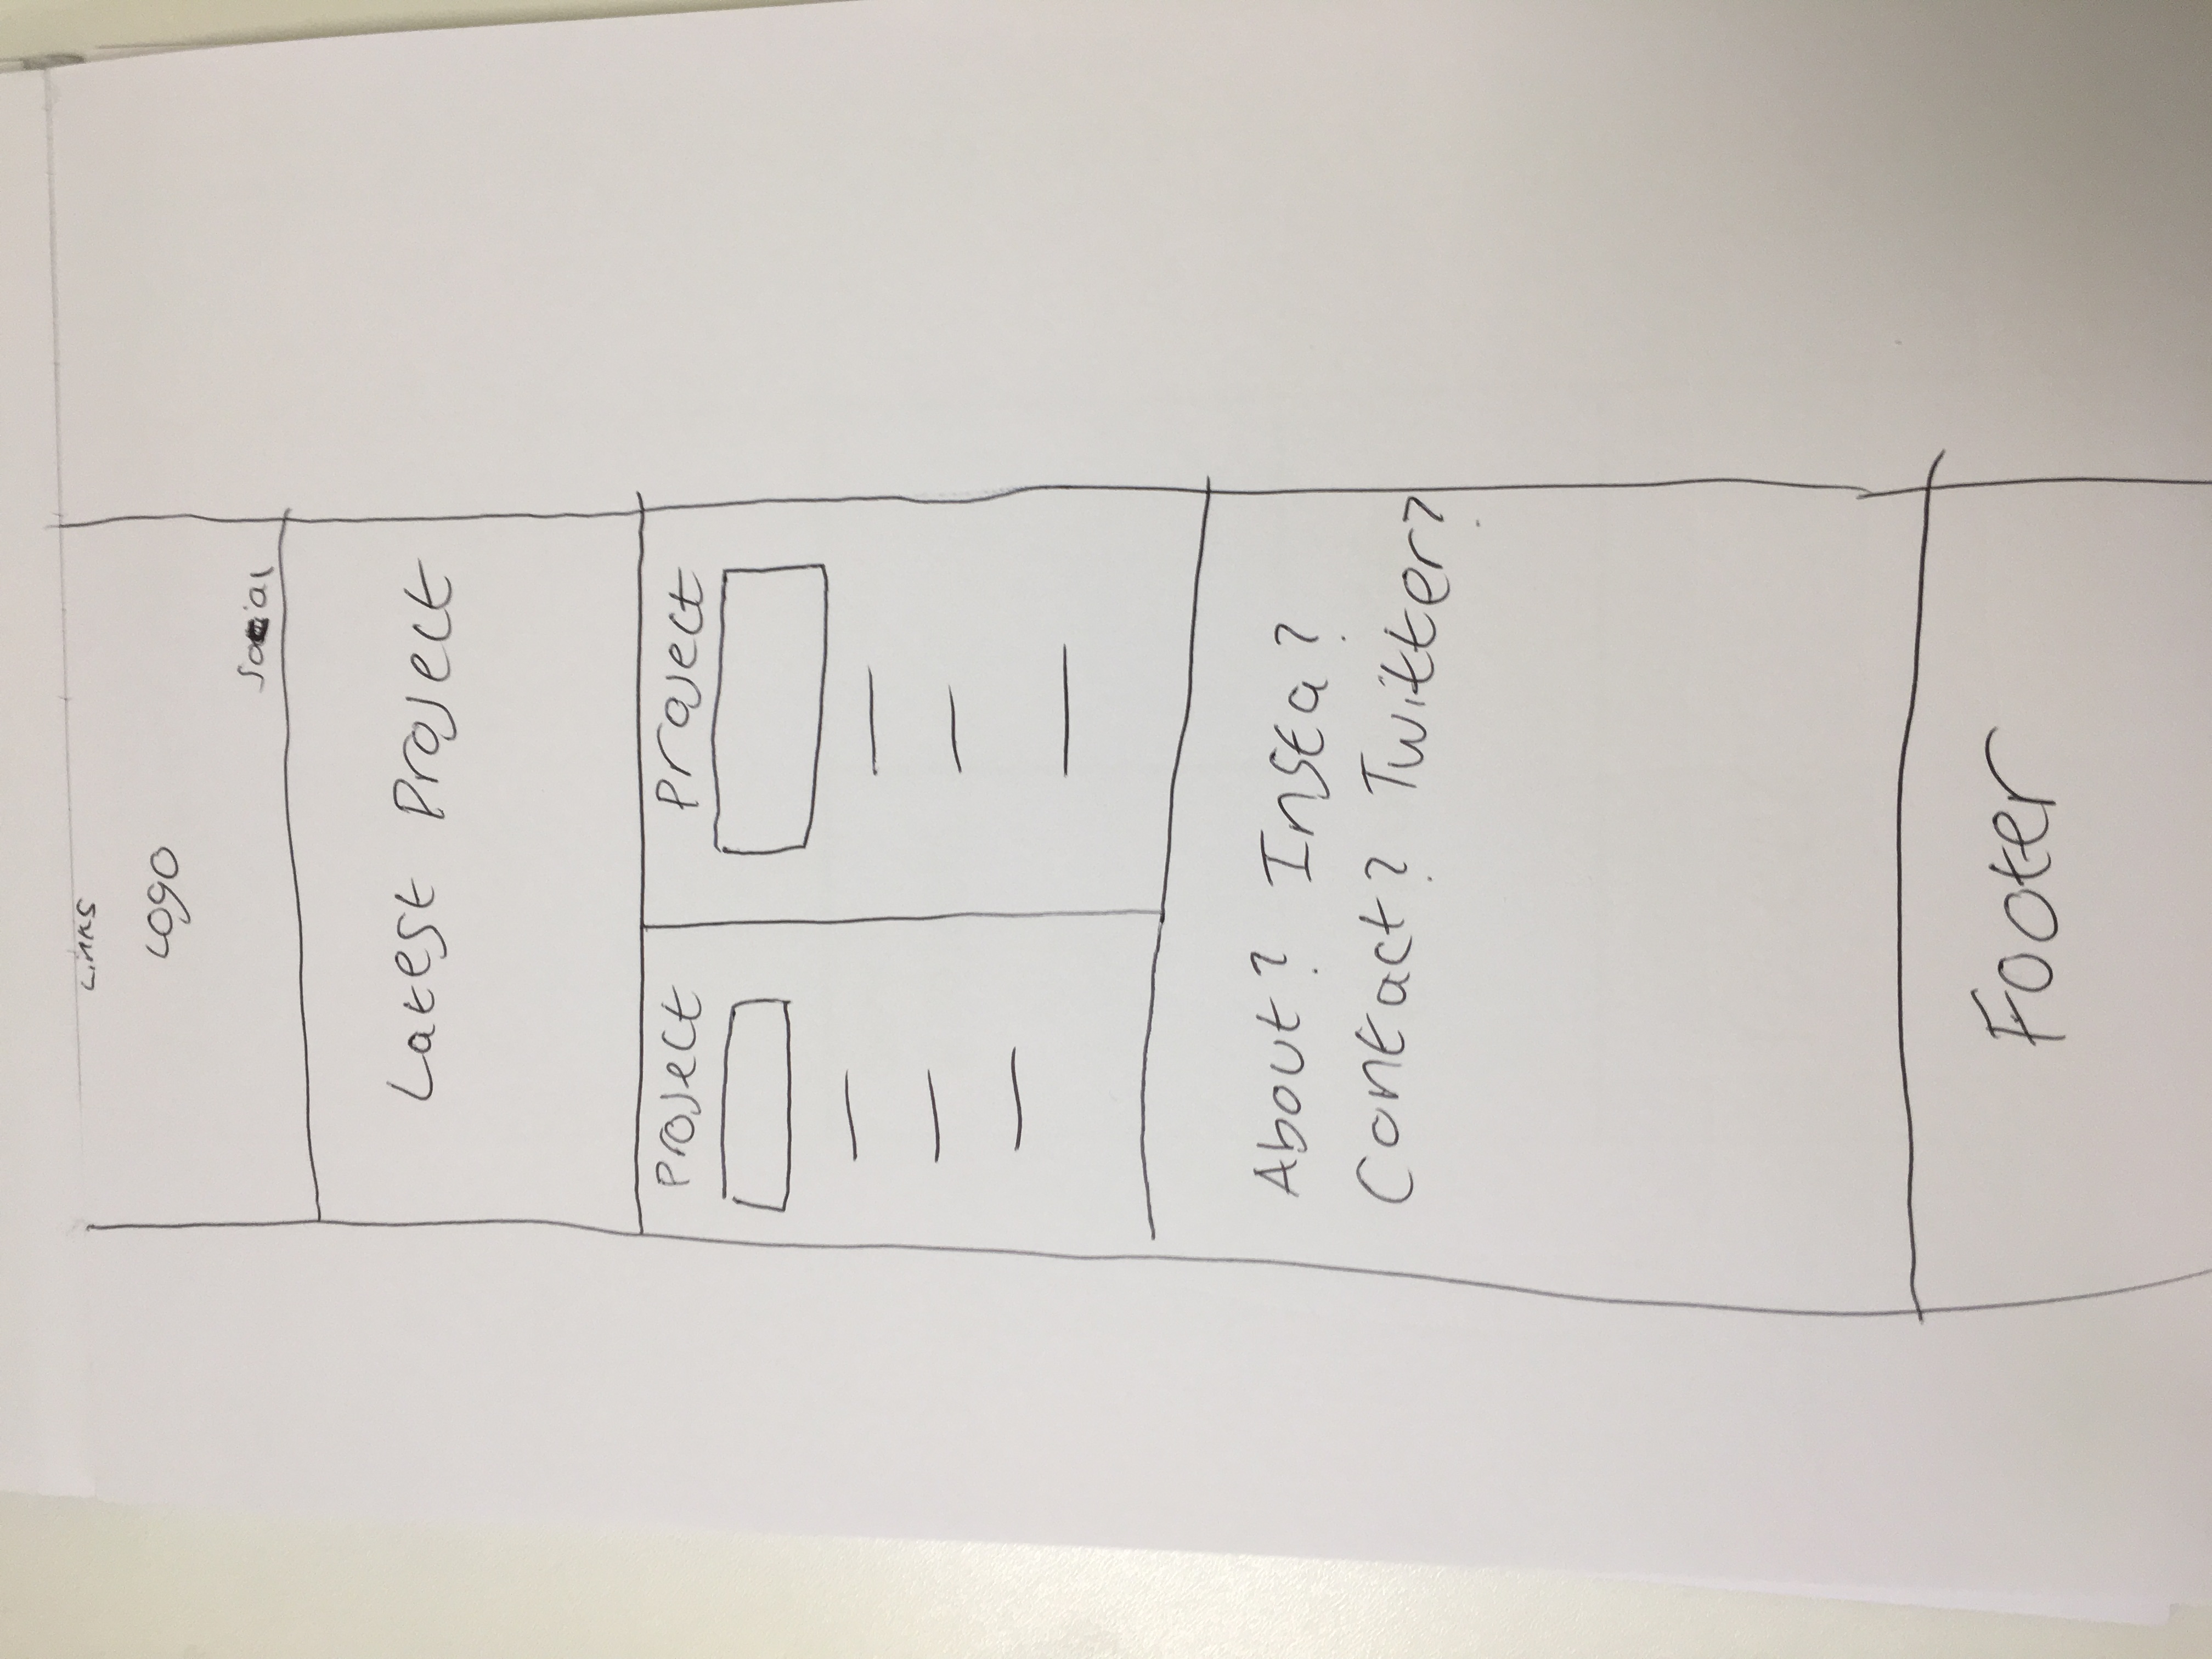 Links
Logo
Social
Latest Project
Project Project
About? Insta?
Contact? Twitter?
Footer